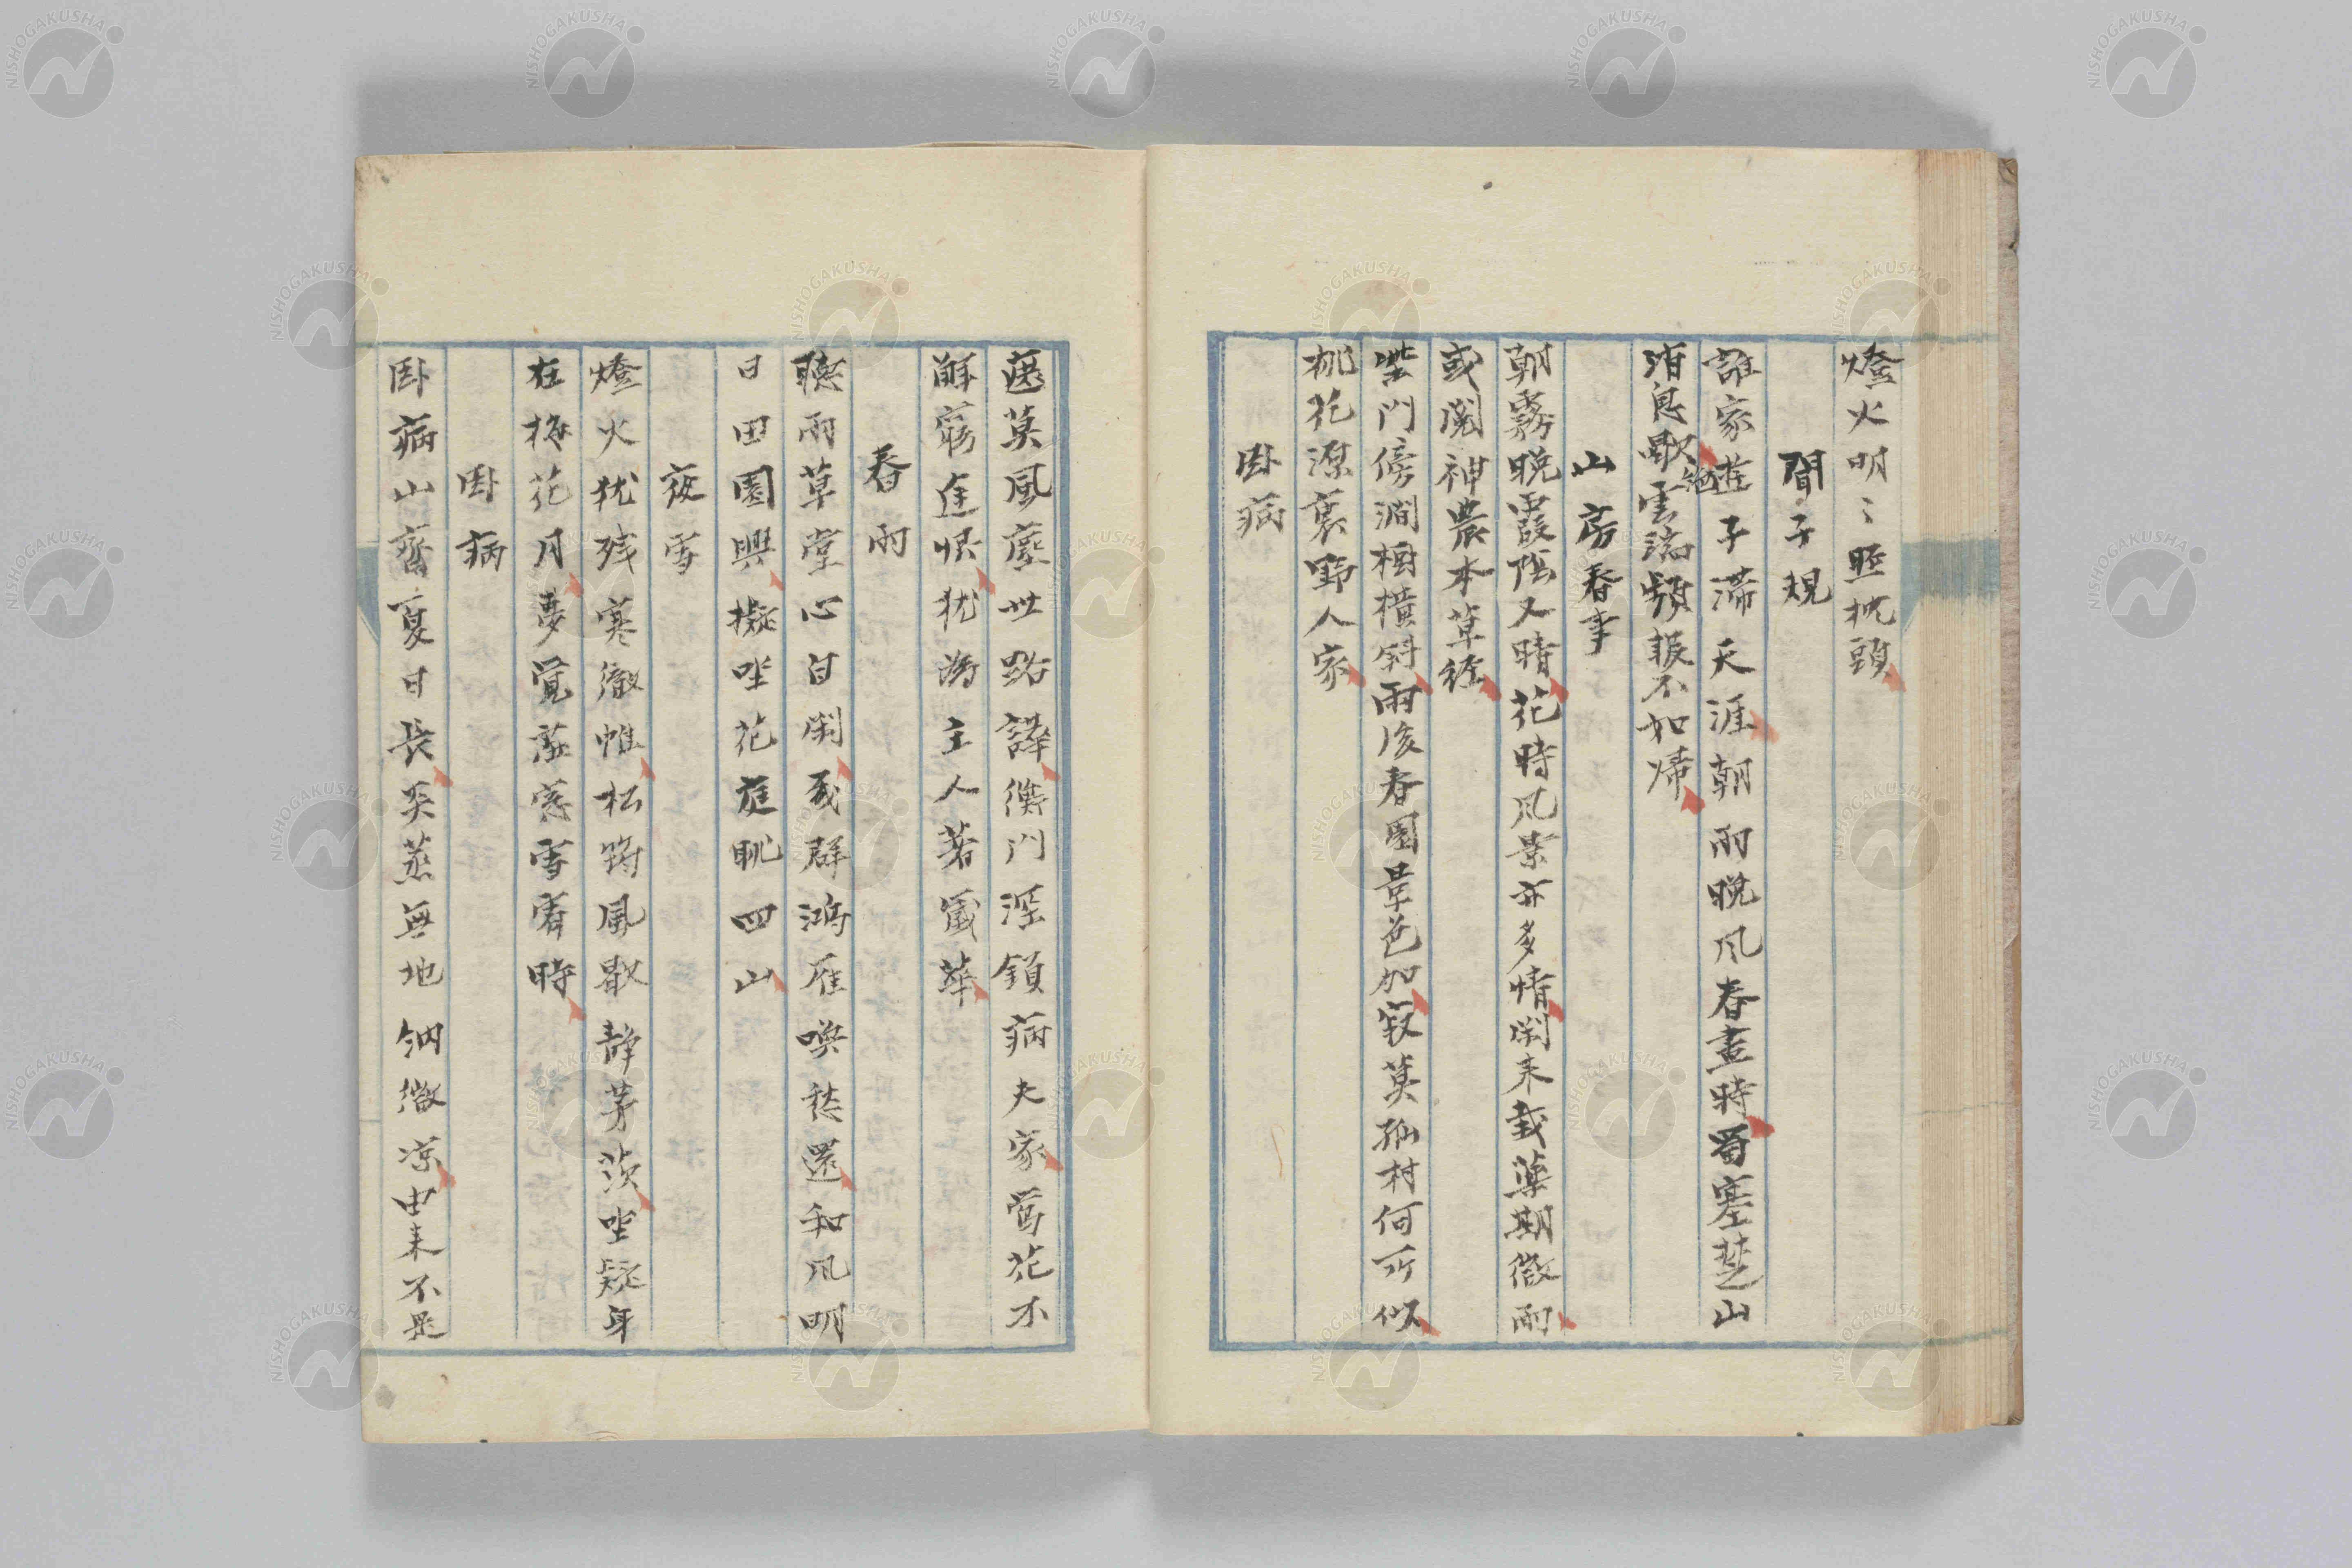 燈火明〻照枕頭
聞子規
誰家遊子滯天涯朝雨晚風春晝時蜀塞楚山
消息歇絶雲端頻報不如帰
山房春事
朝霧晚霞陰又晴花時風景亦多情閑来栽藥期微雨
或閲神農本草經
柴門傍澗樹橫斜雨後春園草色加寂莫孤村何所似
桃花源裏野人家
臥病
寂莫風塵世路譁衡門深鎖病夫家鶯花不
解窮途恨猶為主人著歳華
春雨
聽雨草堂心自閑我群鴻雁喚愁還和風明
日田園興擬坐花庭眺四山
夜雪
燈火猶残寒徹帷松筠風歇静茅茨坐疑身
在梅花月夢覚蓬窓雪霽時
臥病
臥病山齋夏日長炎蒸無地納微凉由来不是
NISHOGAKUSHA